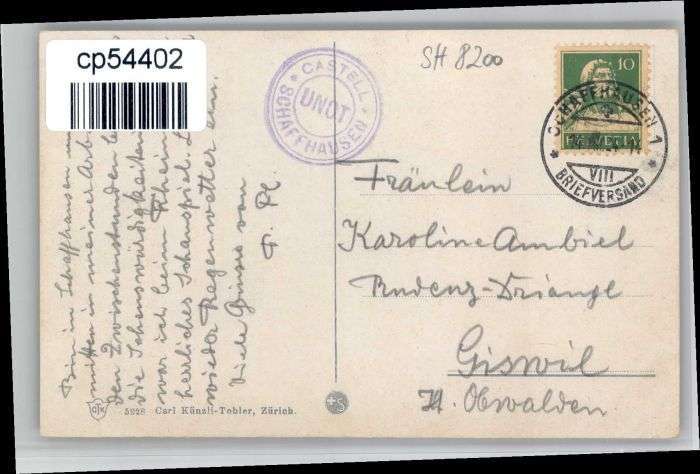 cp54402
SH 8200
CASTELL
UNOT
SCHAFFHAUSEN
10
HELVETIA
SCHAFFHAUSEN 1
VIII
BRIEFVERSAND
Bin in Schaffhausen
mitten in meiner Arb
den Zwischenstunden
die Sehenswürdigkeiten
war ich beim Rhein
herrliches Schauspiel.
wieder Regenwetter
Viele Grüsse von
Fräulein
Karoline Ambiel
Rudenz-Driangl
Giswil
Kt. Obwalden
5928 Carl Künzli-Tobler, Zürich.